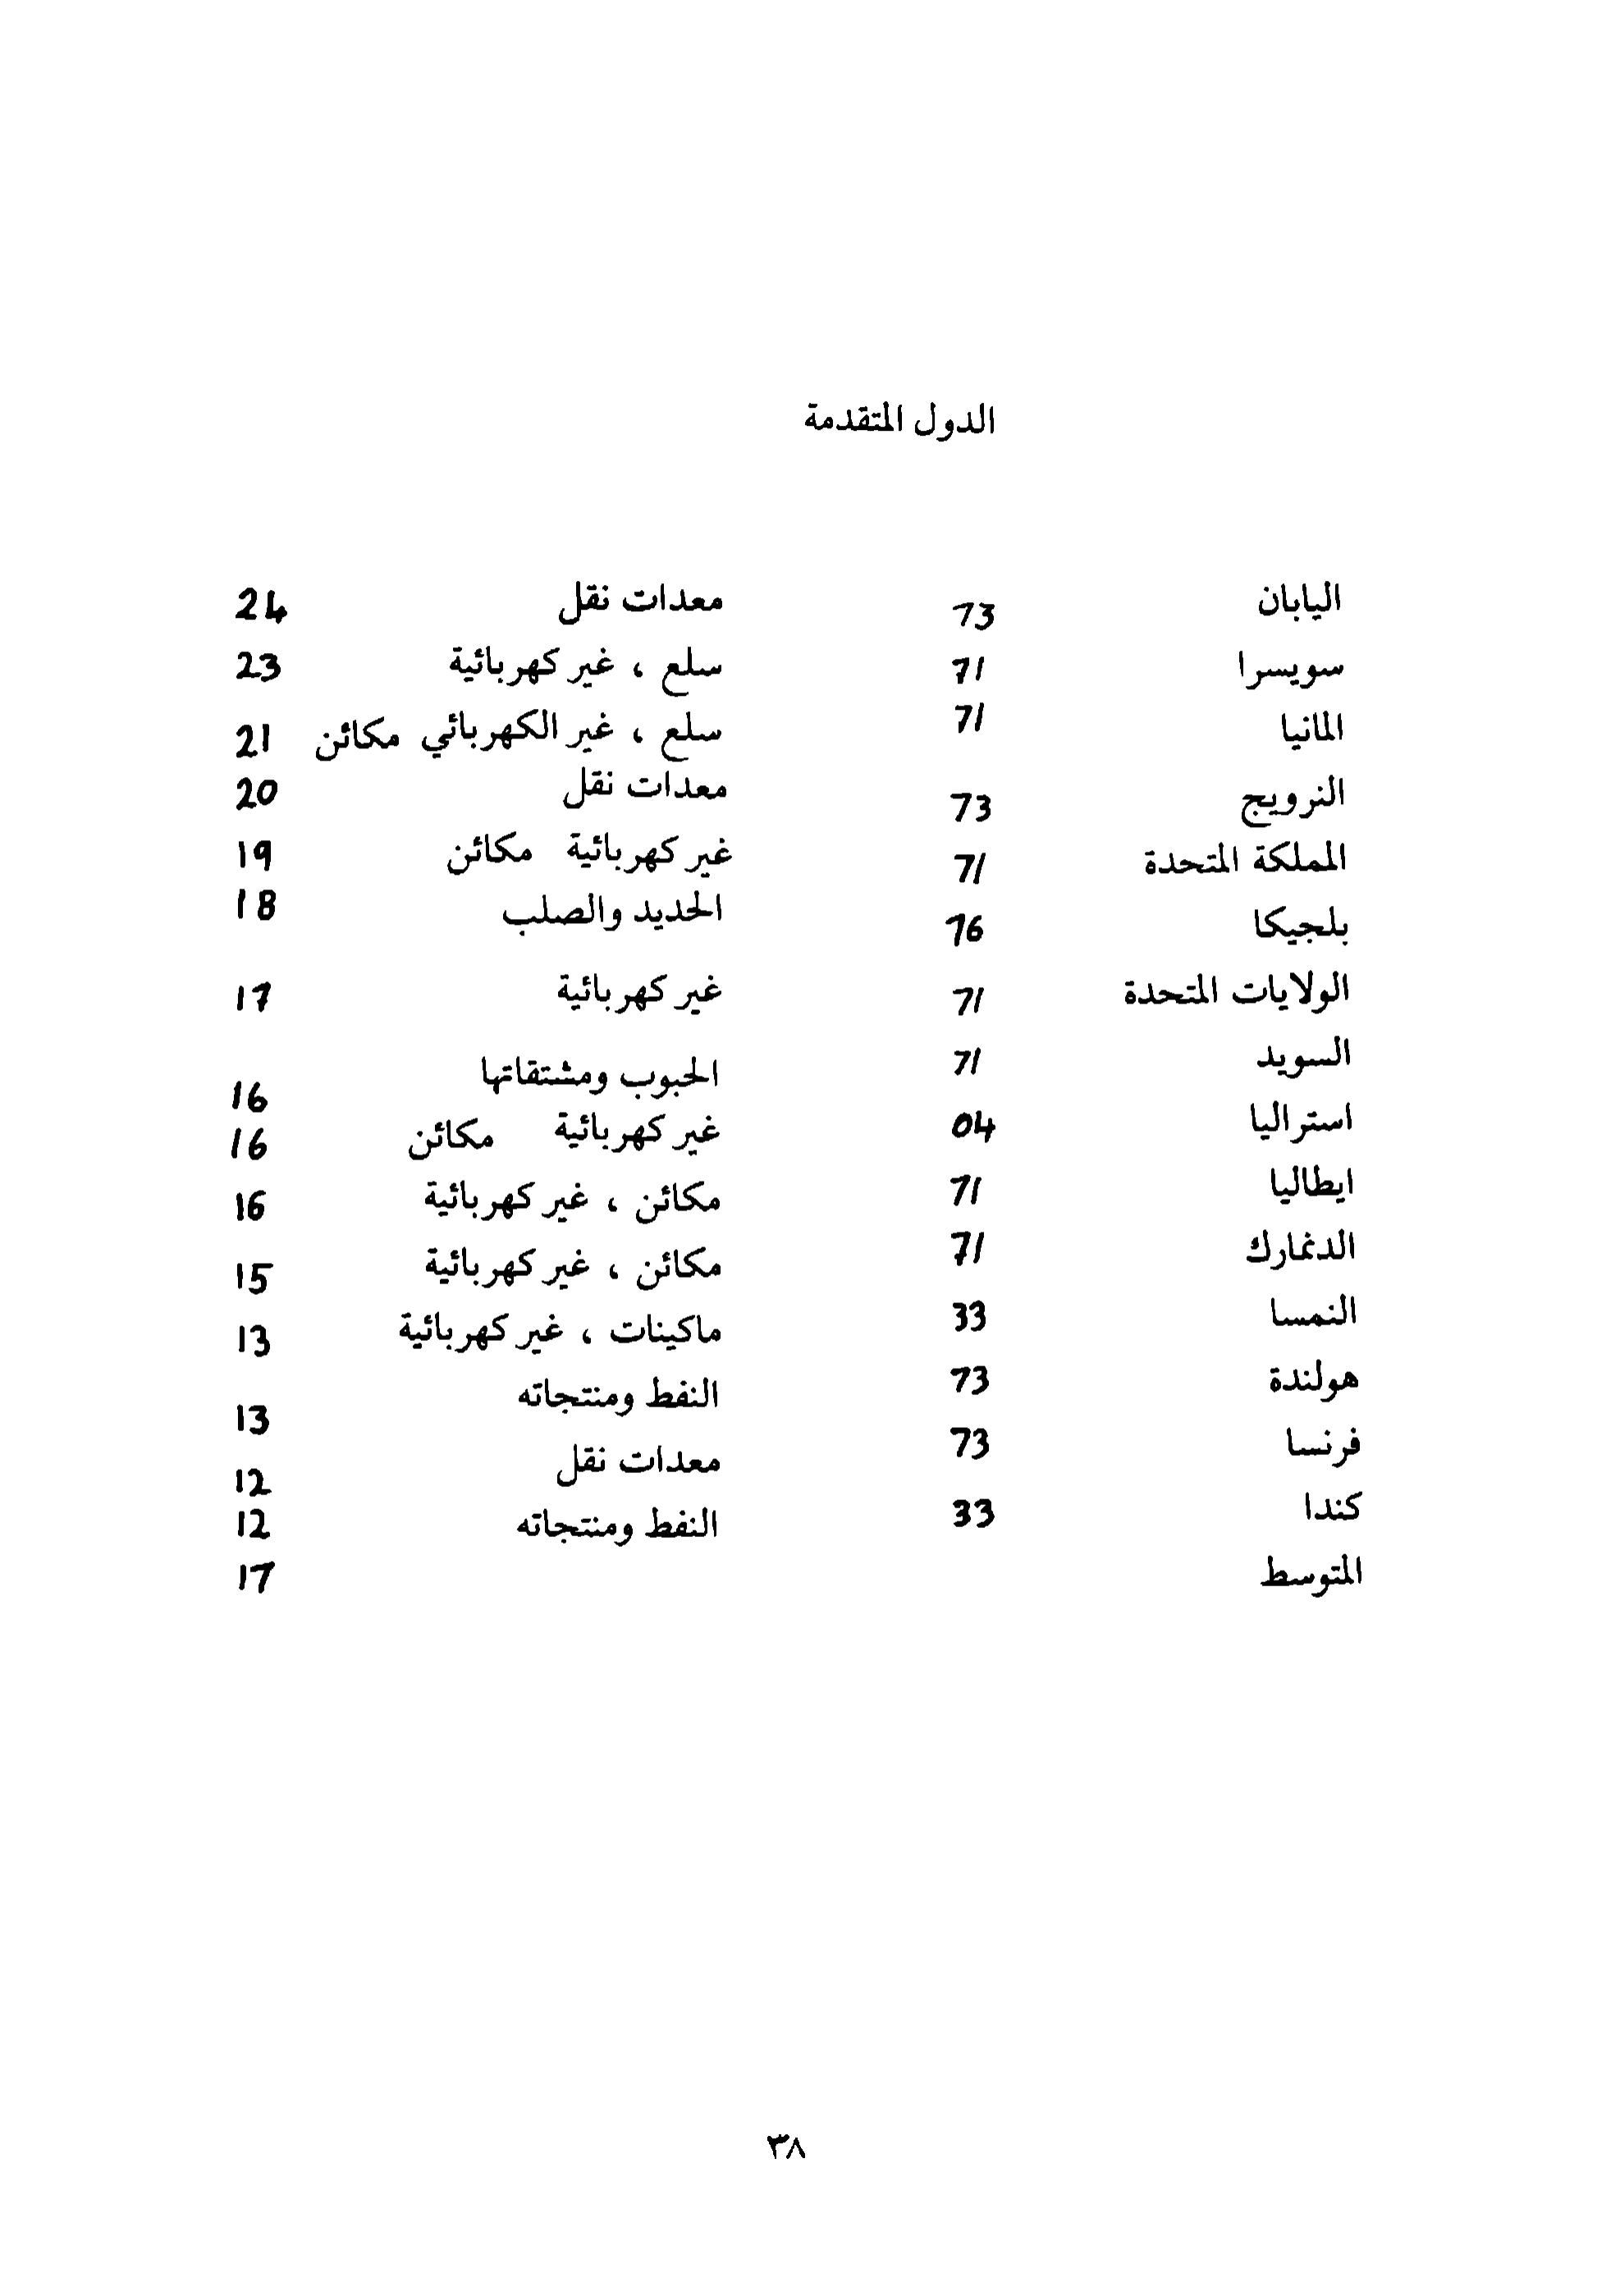 الدول المتقدمة
اليابان 73 معدات نقل 24
سويسرا 71 سلع ، غير كهربائية 23
المانيا 71 سلع ، غير الكهربائي مكائن 21
النرويج 73 معدات نقل 20
المملكة المتحدة 71 غير كهربائية مكائن 19
بلجيكا 76 الحديد والصلب 18
الولايات المتحدة 71 غير كهربائية 17
السويد 71 الحبوب ومشتقاتها 16
استراليا 04 غير كهربائية مكائن 16
ايطاليا 71 مكائن ، غير كهربائية 16
الدنمارك 71 مكائن ، غير كهربائية 15
النمسا 33 ماكينات ، غير كهربائية 13
هولندة 73 النفط ومنتجاته 13
فرنسا 73 معدات نقل 12
كندا 33 النفط ومنتجاته 12
المتوسط 17
٣٨